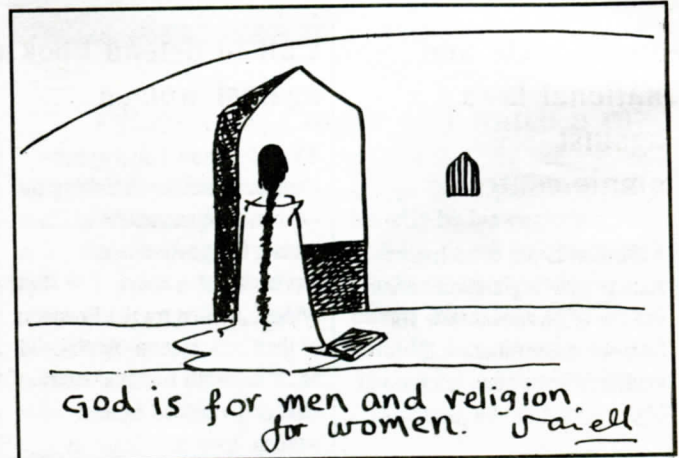 God is for men and religion
for women. Vaiell